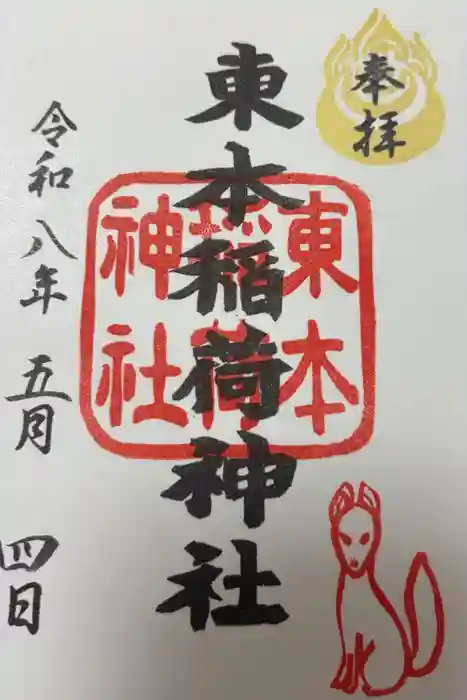 奉拝
東本稲荷神社
東本
稲荷
神社
令和八年五月四日